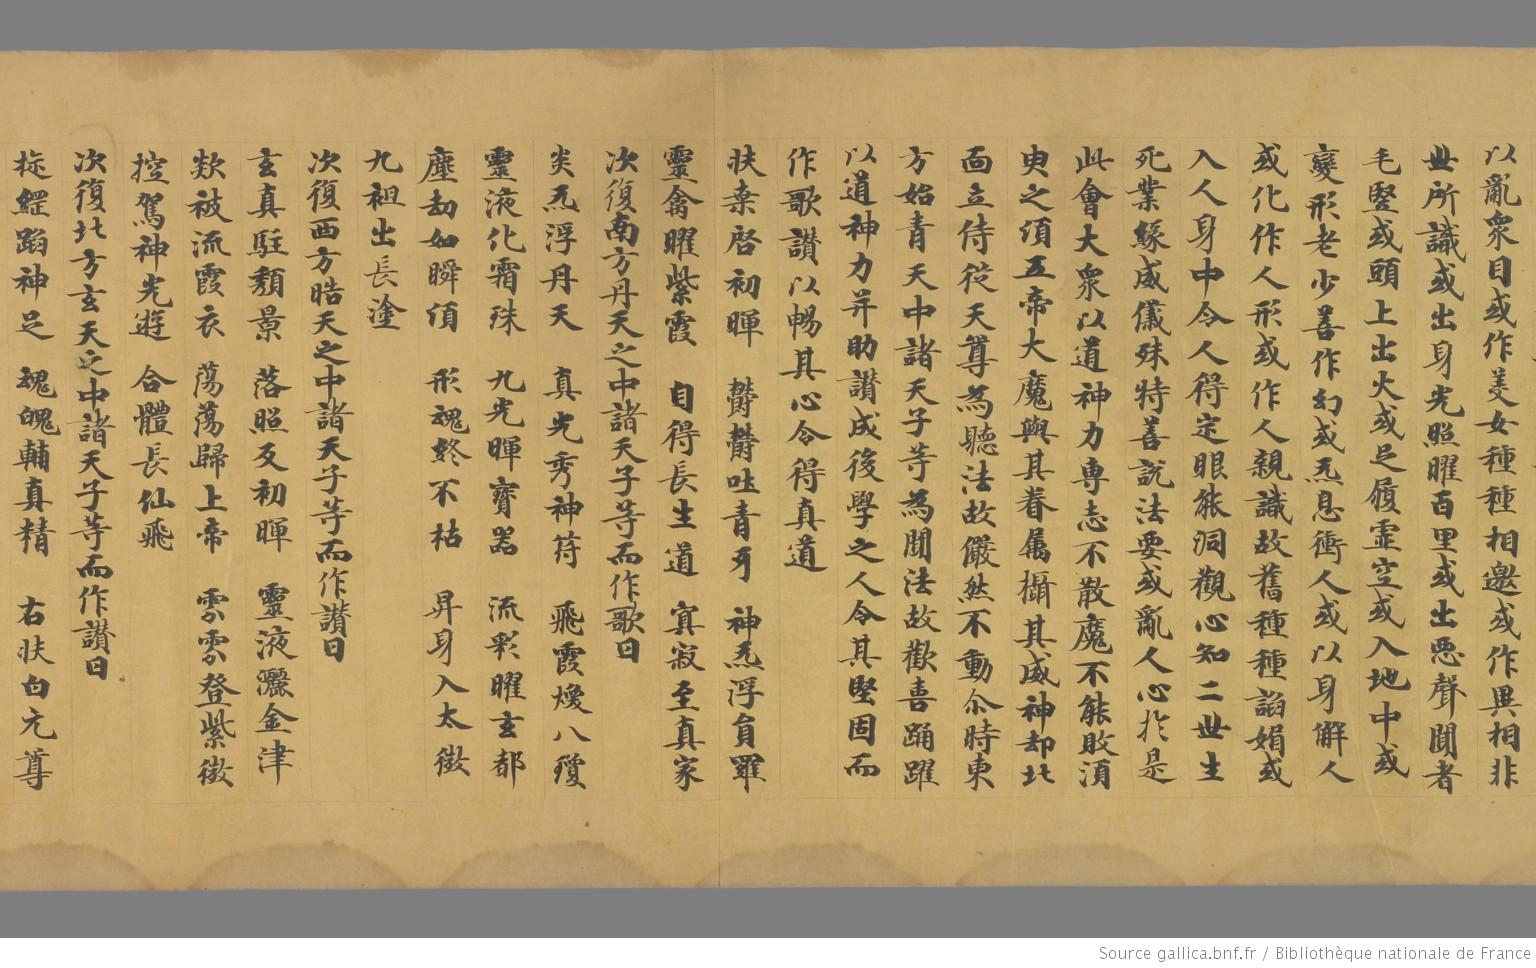 以亂衆目或作美女種種相邀或作異相非
世所識或出身光照曜百里或出惡聲聞者
毛竪或頭上出火或足履虛空或入地中或
變形老少善作幻或炁息衝人或以身解人
或化作人形或作人親識故舊種種諂媚或
入人身中令人得定眼能洞觀心知二世生
死業緣威儀殊特善說法要或亂人心於是
此會大衆以道神力專志不散魔不能敗須
臾之頃五帝大魔與其眷屬攝其威神却北
面立侍從天尊為聽法故儼然不動尒時東
方始青天中諸天子等為聞法故歡喜踊躍
以道神力并助讚成後學之人令其堅固而
作歌讚以暢其心令得真道
扶桒啓初暉　欝欝吐青牙　神炁浮員羅
靈禽曜紫霞　自得長生道　寘寂至真家
次復南方丹天之中諸天子等而作歌曰
炎炁浮丹天　真光秀神符　飛霞煥八瓊
靈液化霜珠　九光暉寶罍　流彩曜玄都
塵劫如瞬頃　形魂終不枯　昇身入太微
九祖出長塗
次復西方晧天之中諸天子等而作讚曰
玄真駐頹景　落照反初暉　靈液灑金津
欻被流霞衣　蕩蕩歸上帝　雰雰登紫微
控駕神光遊　合體長仙飛
次復北方玄天之中諸天子等而作讚曰
蹈神足　魂魄輔真精　右扶白元尊
Source gallica.bnf.fr / Bibliothèque nationale de France